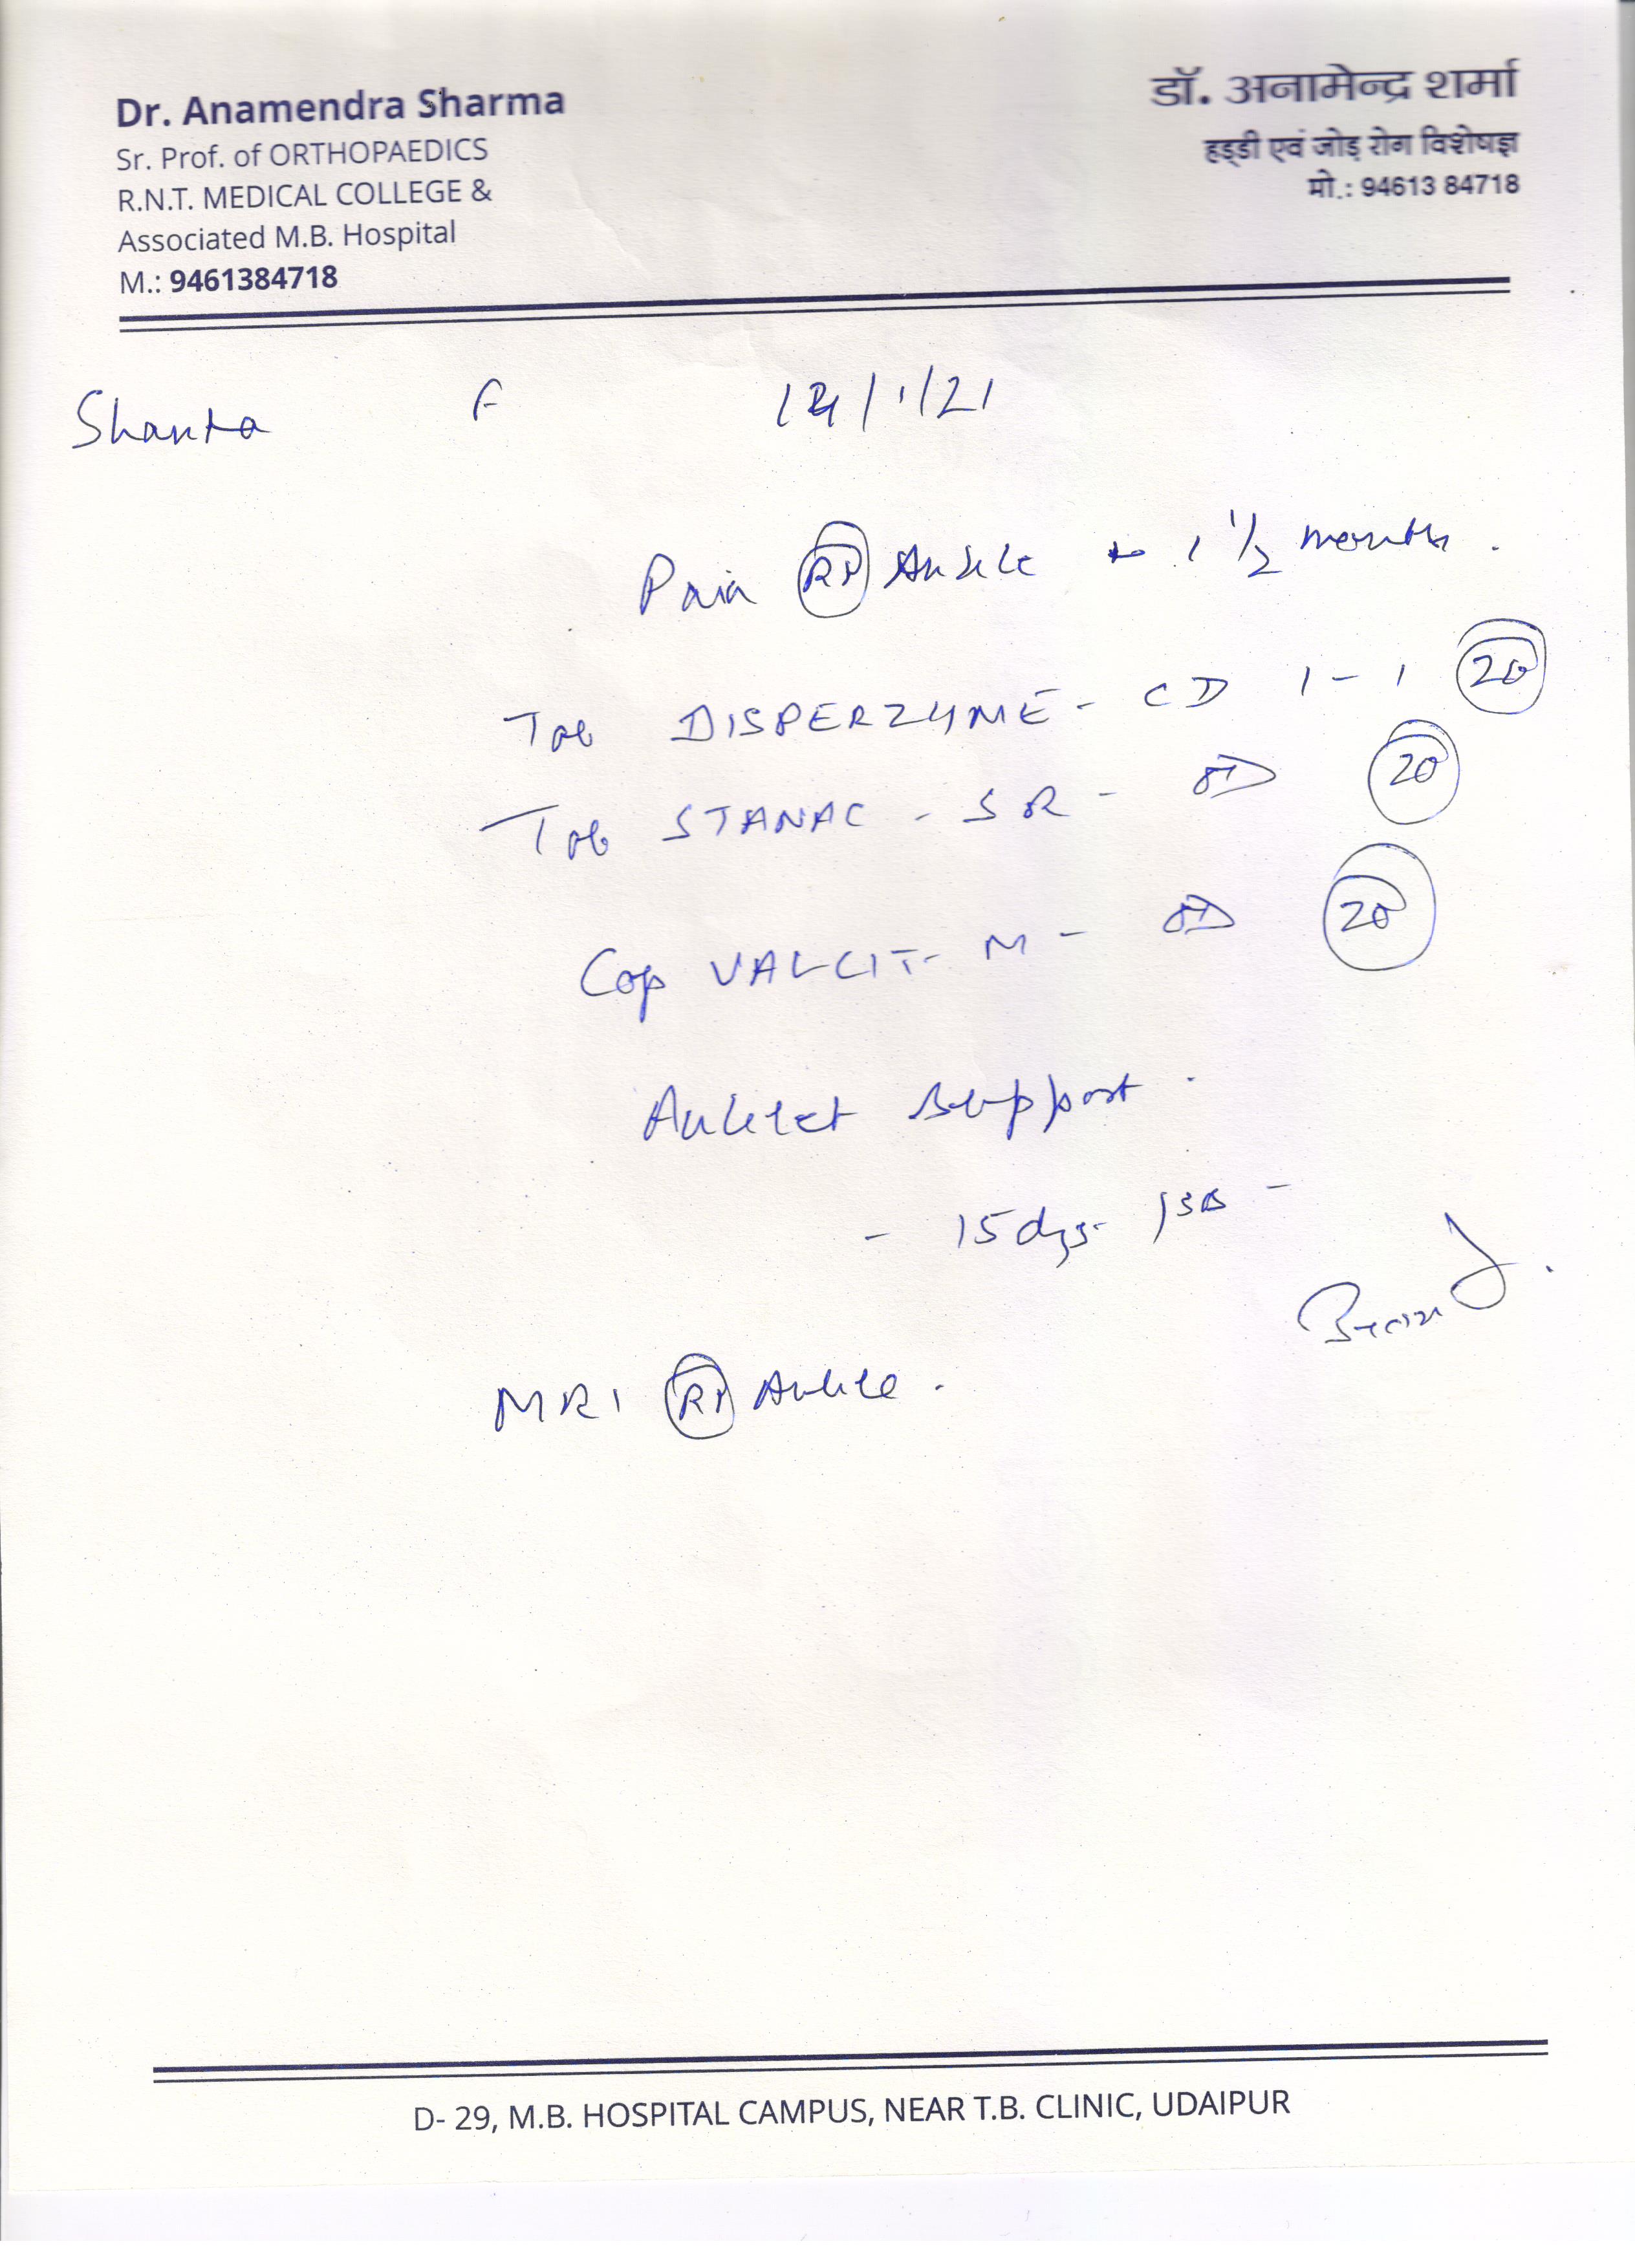 Dr. Anamendra Sharma
Sr. Prof. of ORTHOPAEDICS
R.N.T. MEDICAL COLLEGE &
Associated M.B. Hospital
M.: 9461384718
डॉ. अनामेन्द्र शर्मा
हड्डी एवं जोड़ रोग विशेषज्ञ
मो.: 94613 84718
Shanta F /1/21
Pain Rt Ankle 1 1/2 months.
Tab DISPERZYME - CD 1-1 20
Tab STANAC - SR - OD 20
Cap VALCIT - M - OD 20
Anklet support.
- 15 dys -
MRI Rt Ankle.
D- 29, M.B. HOSPITAL CAMPUS, NEAR T.B. CLINIC, UDAIPUR